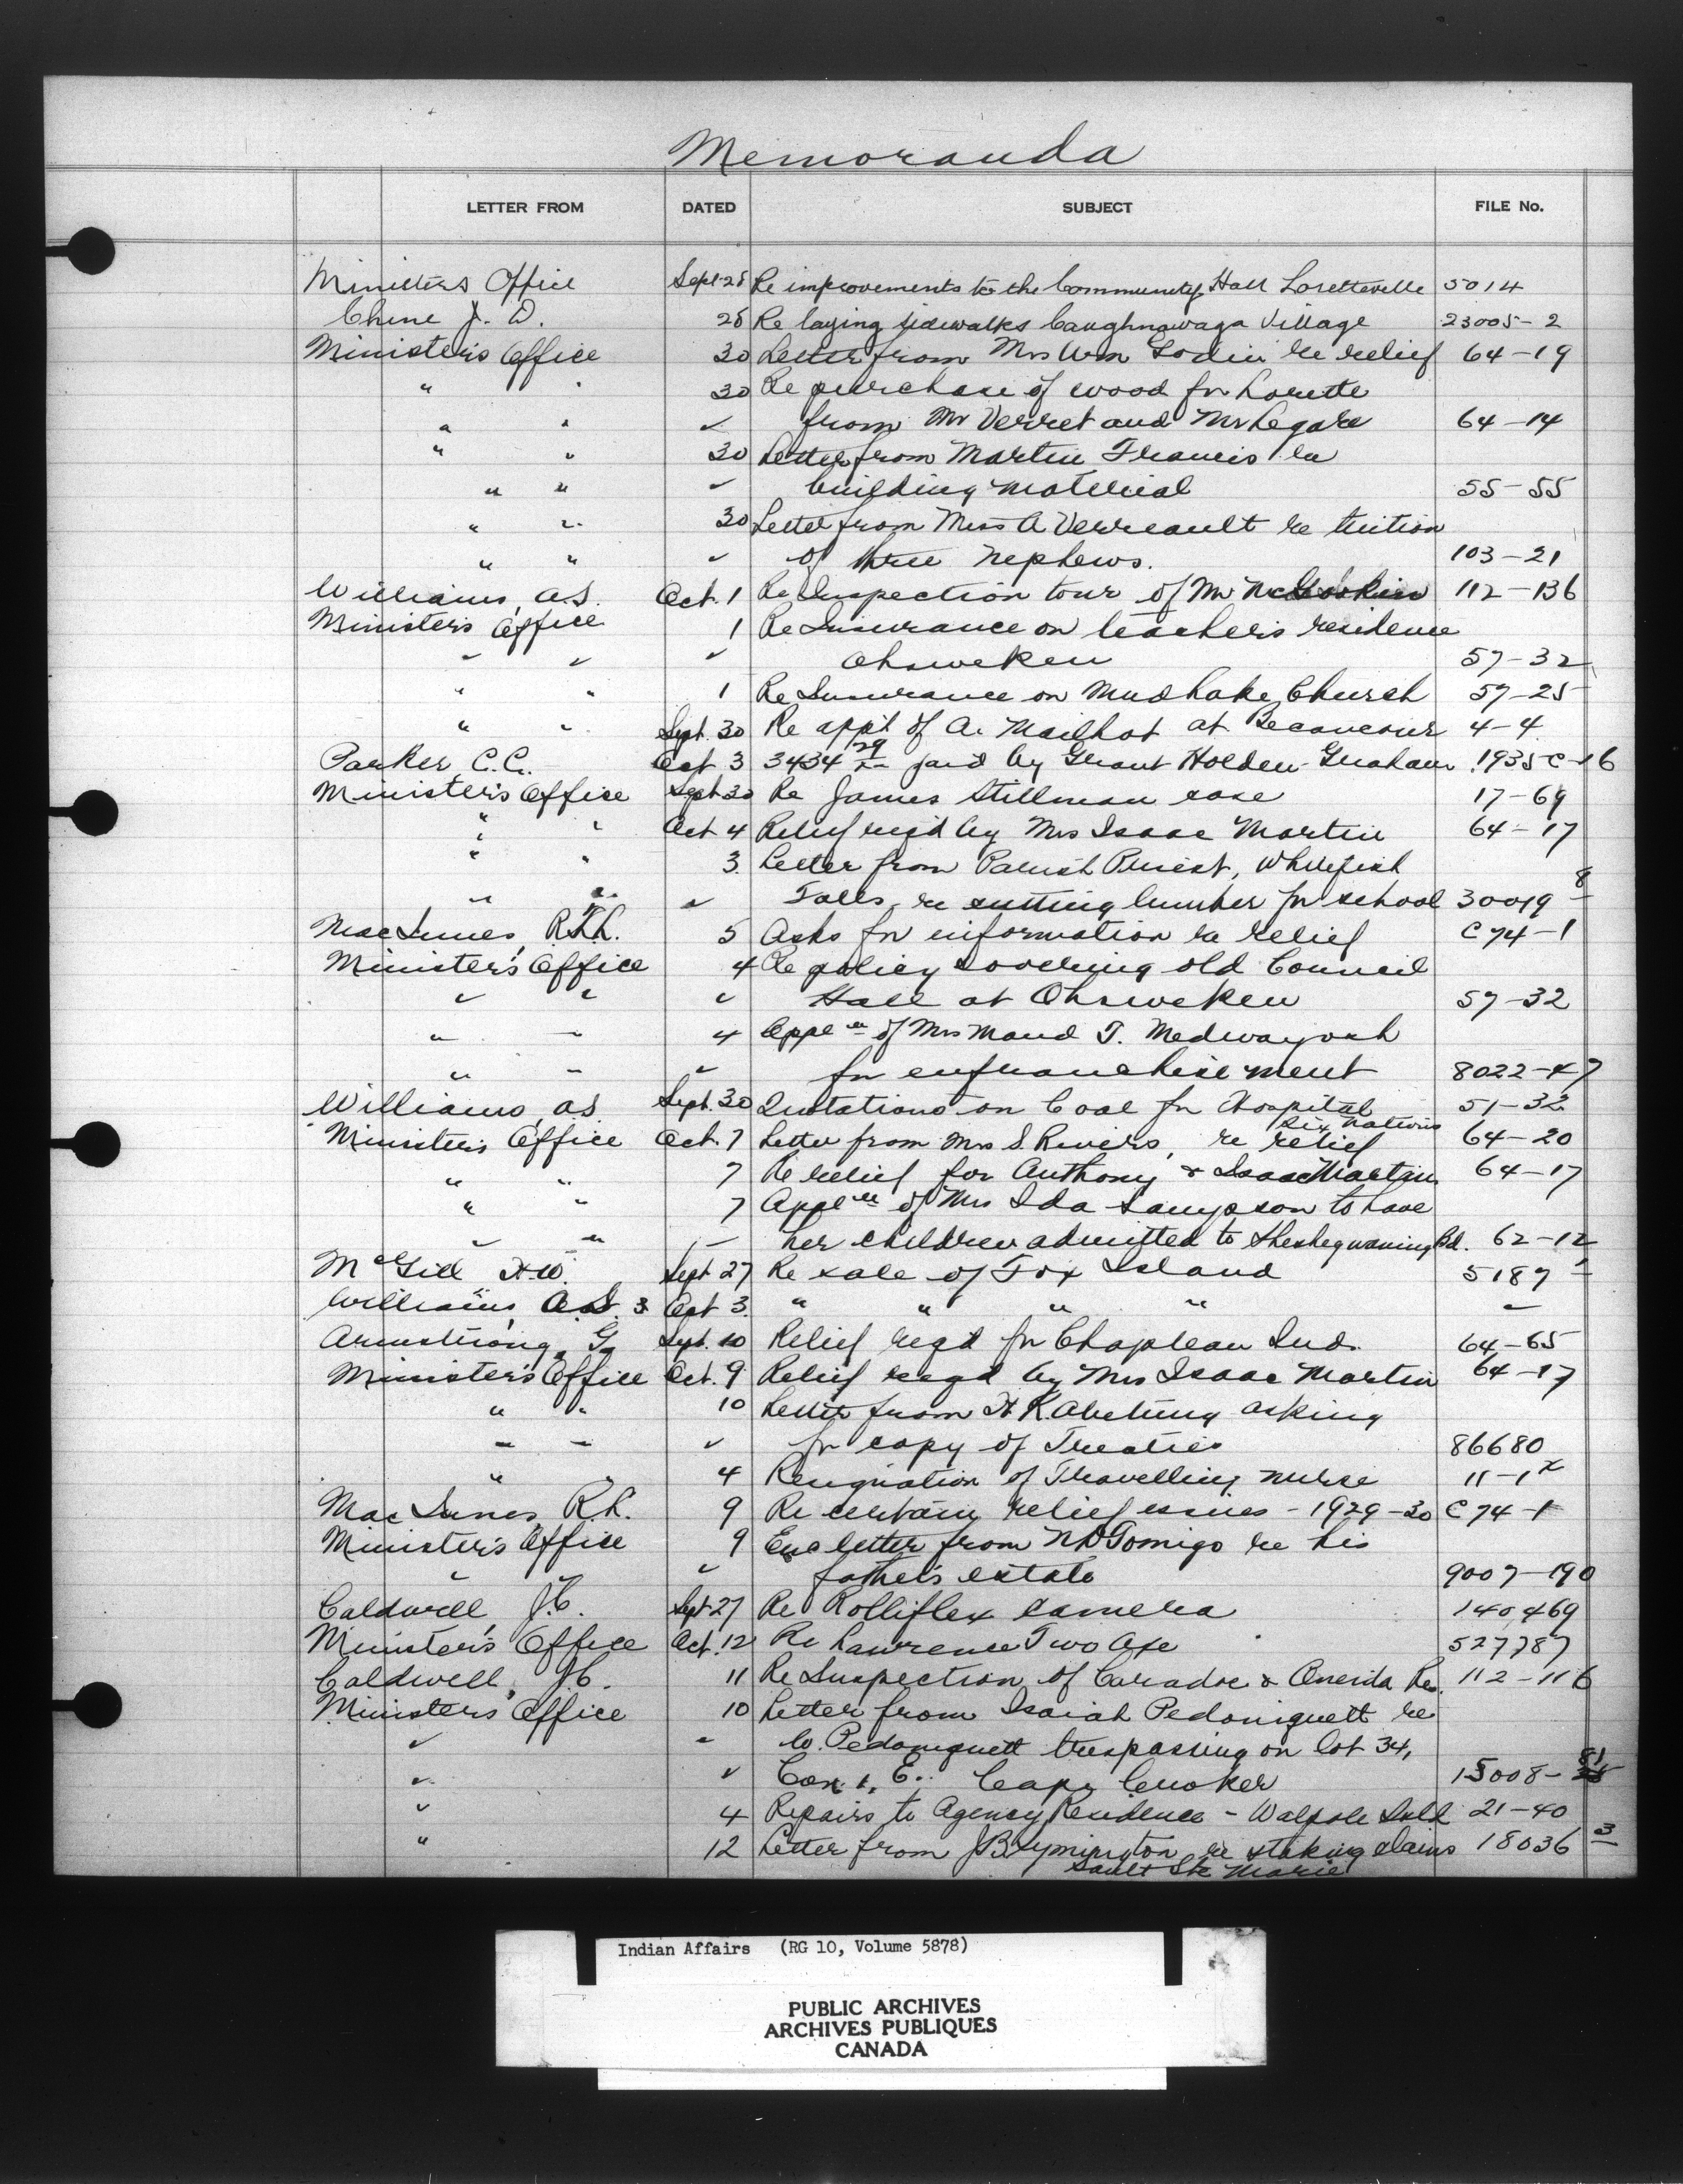 Memoranda
LETTER FROM DATED SUBJECT FILE No.
Minister's Office Sept 28 Re improvements to the Community Hall Loretteville 5014
Chene J. D. 28 Re laying sidewalks Caughnawaga Village 23005-2
Minister's Office 30 Letter from Mrs Wm Lodin re relief 64-19
" " 30 Re purchase of wood for Lorette
" " " from Mr Verret and Mr Legare 64-14
" " 30 Letter from Martin Francis re
" " " building material 55-55
" " 30 Letter from Miss A Verreault re tuition
" " " of three nephews. 103-21
Williams, A.S. Oct. 1 Re Inspection tour of Mr 112-136
Minister's Office 1 Re Insurance on teacher's residence
" " " Ohsweken 57-32
" " 1 Re Insurance on Mud Lake Church 57-25
" " Sept. 30 Re app't of A. Mailhot at Becancour 4-4
Parker C.C. Oct 3 3434 29 paid by Grant Holden Graham 1935 C-16
Minister's Office Sept 30 Re James Stillman case 17-69
" " Oct 4 Relief req'd by Mrs Isaac Martin 64-17
" " 3 Letter from Parish Priest, Whitefish
" " " Falls, re cutting lumber for school 30019 8
MacInnes, R.T.L. 5 Asks for information re relief C74-1
Minister's Office 4 Re policy covering old Council
" " " Hall at Ohsweken 57-32
" " 4 Appl'n of Mrs Maud T. Medwayosh
" " " for enfranchisement 8022-47
Williams, A.S. Sept. 30 Quotations on Coal for Hospital 51-32
Six Nations
Minister's Office Oct. 7 Letter from Mrs S. Rivers, re relief 64-20
" " 7 Re relief for Anthony & Isaac Martin 64-17
" " 7 Appl'n of Mrs Ida Sampson to have
" " " her children admitted to Sheshegwaning Bd. 62-12
McGill H.W. Sept 27 Re sale of Fox Island 5187-1
Williams, A.S. Oct 3 " " " " "
Armstrong, G. Sept. 10 Relief req'd for Chapleau Inds. 64-65
Minister's Office Oct. 9 Relief req'd by Mrs Isaac Martin 64-17
" " 10 Letter from H K. Abetung asking
" " " for copy of Treaties 86680
" " 4 Resignation of Travelling nurse 11-1
MacInnes, R.L. 9 Re certain relief issues - 1929-30 C74-1
Minister's Office 9 Enc letter from Tomigo re his
" " father's estate 9007-190
Caldwell, J.C. Sept 27 Re Rolliflex camera 140469
Minister's Office Oct. 12 Re Lawrence Two Axe 527787
Caldwell, J.C. 11 Re Inspection of Caradoc & Oneida Res. 112-116
Minister's Office 10 Letter from Isaiah Pedoniquett re
" " W. Pedoniquett trespassing on lot 34,
" " Con. 1, E. Cape Croker 15008-81
" 4 Repairs to Agency Residence - Walpole Isld 21-40
" 12 Letter from J B Lymington re staking claims 18036 3
Sault Ste Marie
Indian Affairs (RG 10, Volume 5878)
PUBLIC ARCHIVES
ARCHIVES PUBLIQUES
CANADA